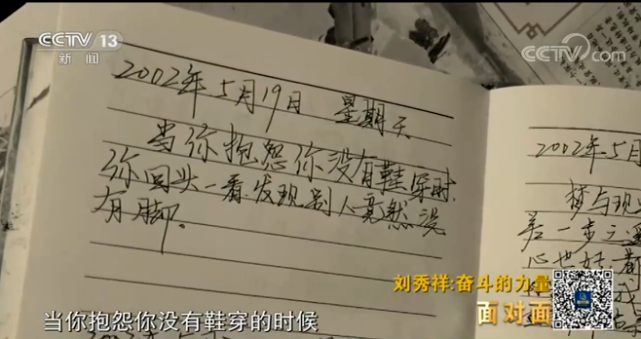 CCTV 13
新闻
CCTV.com
2002年5月19日 星期天
当你抱怨你没有鞋穿时,
你回头一看发现别人竟然没
有脚。
2002年5月
梦与现
差一步之遥
心也好
刘秀祥:奋斗的力量
面对面
当你抱怨你没有鞋穿的时候